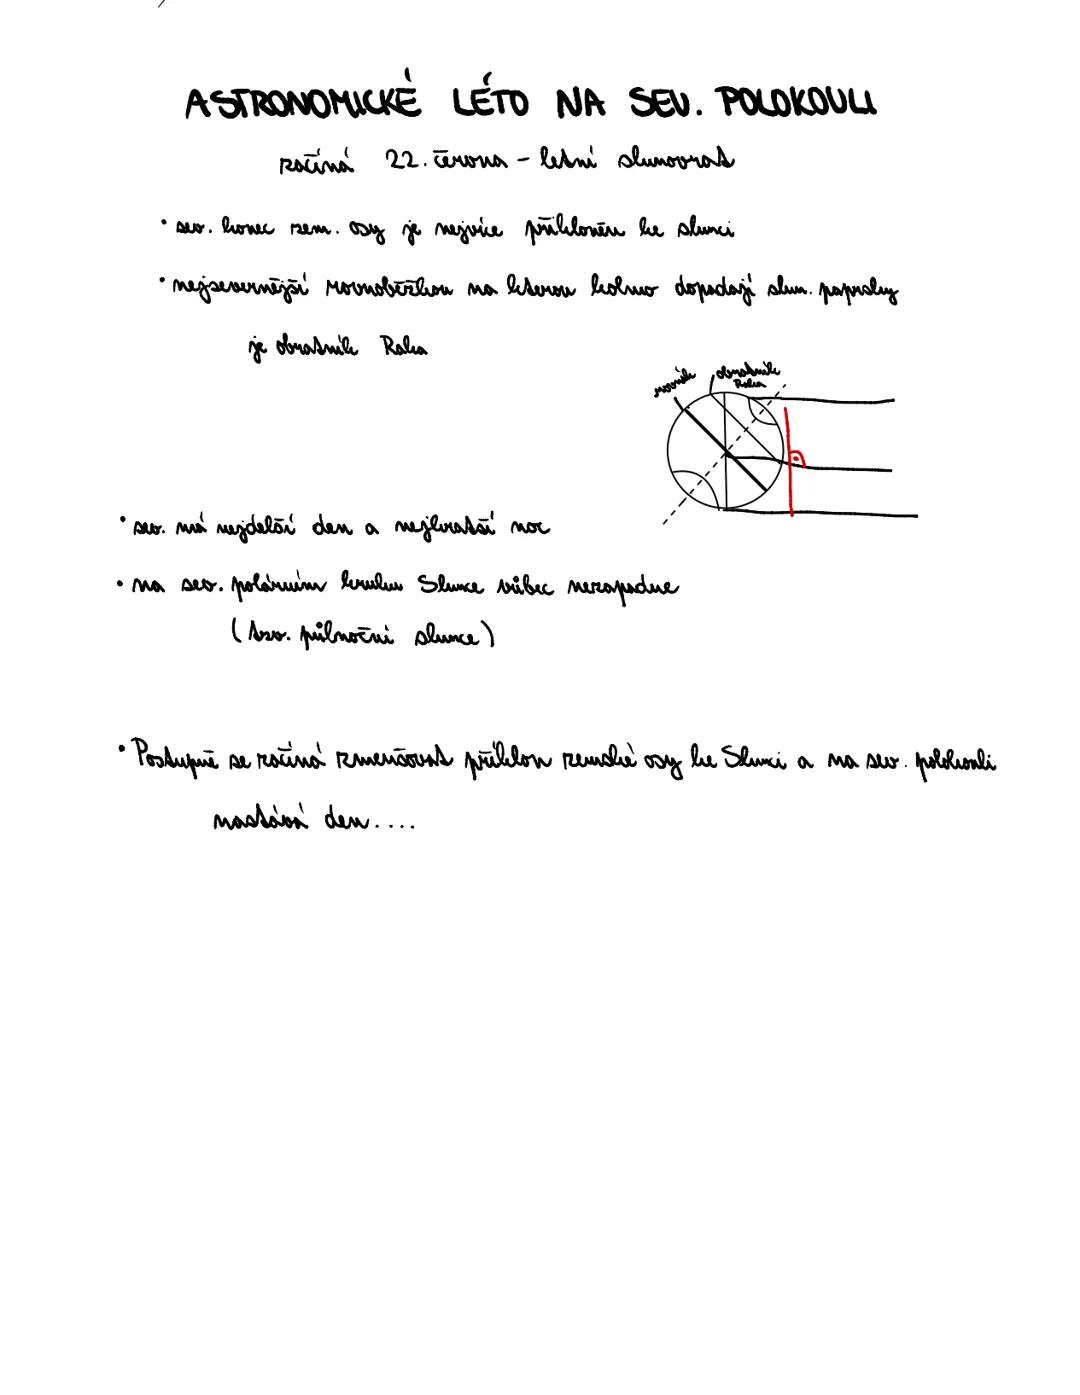 ASTRONOMICKÉ LÉTO NA SEV. POLOKOULI
začíná 22. června - letní slunovrat
• sev. konec zem. osy je nejvíce přikloněn ke slunci
• nejsevernější rovnoběžkou na kterou kolmo dopadají slun. paprsky
je obratník Raka
rovník
obratník
Raka
• sev. má nejdelší den a nejkratší noc
• na sev. polárním kruhu Slunce vůbec nezapadne
(tzv. půlnoční slunce)
• Postupně se začíná zmenšovat příklon zemské osy ke Slunci a na sev. polokouli
nastává den....